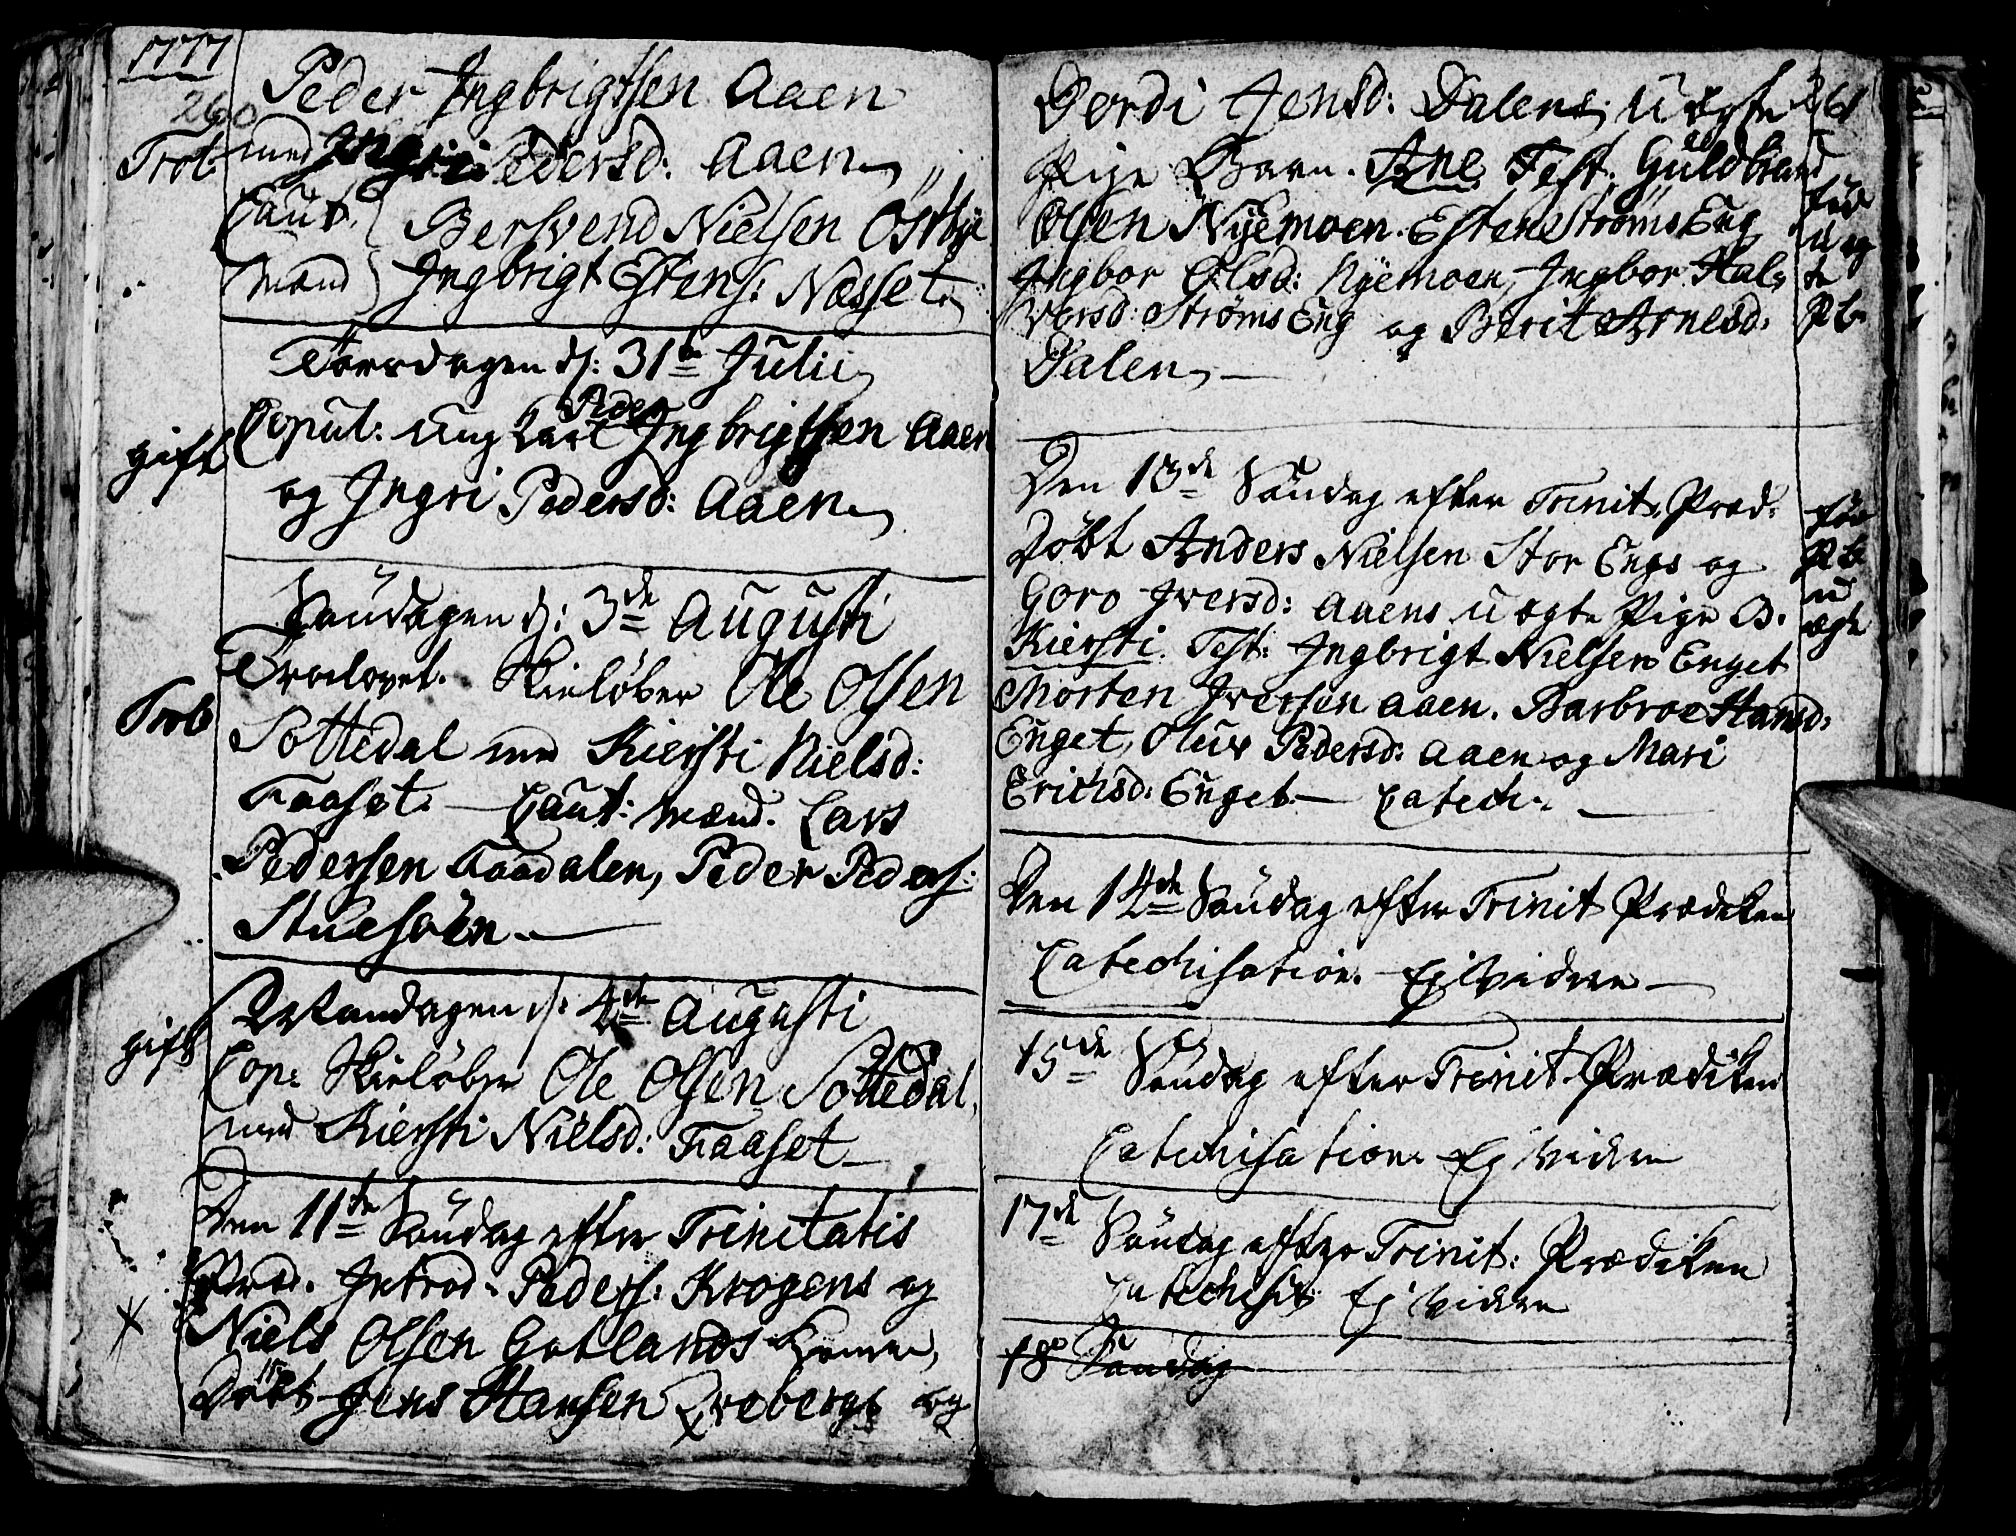 1777
260
Peder Ingbrigtsen Aaen
Trol. med Ingri Pedersd: Aaen,
Caut. Berswend Nielsen Østbye
Mænd Ingbrigt Estens: Næsset.
Torsdagen d: 31te Julii,
Gift Copul: Ung Karl Peder Ingbrigtsen Aaen
og Ingri Pedersd: Aaen,
Søndagen d: 3de Augusti
Trol. Trolovet. Skieløber Ole Olsen
Sottedal med Kiersti Nielsd:
Faaset. — Caut: Mænd. Lars
Pedersen Faadalen, Peder Peders:
Stuesøen. —
Mandagen d: 4de Augusti
gift Cop: Skieløber Ole Olsen Sottedal,
med Kiersti Nielsd: Faaset —
Den 11te Søndag efter Trinitatis
Præd. Introd. Peders: Krogens og
Niels Olsen Gotlands Koner,
Døbt Jens Hansen Breebergs og
261
Dordi Jensd: Dalens, U ægte
Pige Barn. Ane Test. Guldbrand
Olsen Nyemoen. Esten Strøms Eng
Ingbor Olsd: Nyemoen, Ingbor Hal-
versd: Strøms Eng og Berit Arnesd.
Dalen, —
fød
u æg
te
P. b.
Den 13de Søndag efter Trinit. Præd.
Døbt Anders Nielsen Stor Engs og
Goro Iversd: Aaens u ægte Pige B.
Kiersti. Test: Ingbrigt Nielsen Enget
Morten Iversen Aaen. Barbroe Hansd:
Enget, Oluv Pedersd: Aaen og Mari
Erichsd: Enget. — Catech. —
fød
P. b.
u
ægte
Den 14de Søndag efter Trinit Prædiken
Catechisation. Ej Videre —
15de Søndag efter Trinit. Prædiken
Catechisation. Ej Videre
17de Søndag efter Trinit: Prædiken
Catechisat: Ej Videre
18 Søndag